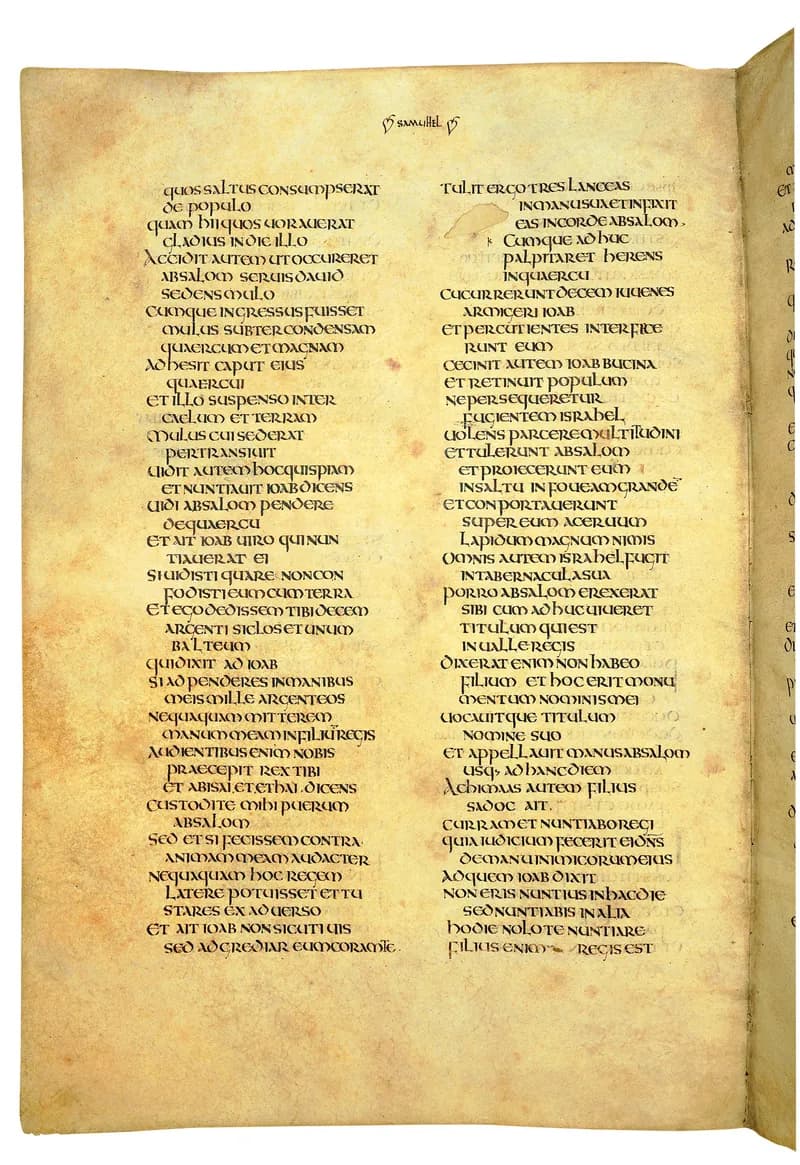 SAMUHEL
QUOS SALTUS CONSUMPSERAT
DE POPULO
QUAM HII QUOS UORAUERAT
GLADIUS IN DIE ILLO
ACCIDIT AUTEM UT OCCURERET
ABSALOM SERUIS DAUID
SEDENS MULO
CUMQUE INGRESSUS FUISSET
MULUS SUBTER CONDENSAM
QUAERCUM ET MAGNAM
ADHESIT CAPUT EIUS
QUAERCUI
ET ILLO SUSPENSO INTER
CAELUM ET TERRAM
MULUS CUI SEDERAT
PERTRANSIUIT
UIDIT AUTEM HOC QUISPIAM
ET NUNTIAUIT IOAB DICENS
UIDI ABSALOM PENDERE
DE QUAERCU
ET AIT IOAB UIRO QUI NUN
TIAUERAT EI
SI UIDISTI QUARE NON CON
FODISTI EUM CUM TERRA
ET EGO DEDISSEM TIBI DECEM
ARGENTI SICLOS ET UNUM
BALTEUM
QUI DIXIT AD IOAB
SI ADPENDERES IN MANIBUS
MEIS MILLE ARGENTEOS
NEQUAQUAM MITTEREM
MANUM MEAM IN FILIŪ REGIS
AUDIENTIBUS ENIM NOBIS
PRAECEPIT REX TIBI
ET ABISAI ET ETHAI DICENS
CUSTODITE MIHI PUERUM
ABSALOM
SED ET SI FECISSEM CONTRA
ANIMAM MEAM AUDACTER
NEQUAQUAM HOC REGEM
LATERE POTUISSET ET TU
STARES EX ADUERSO
ET AIT IOAB NON SICUT UIS
SED ADGREDIAR EUM CORAM TE
TULIT ERGO TRES LANCEAS
IN MANU SUA ET INFIXIT
EAS IN CORDE ABSALOM
CUMQUE ADHUC
PALPITARET HERENS
IN QUAERCU
CUCURRERUNT DECEM IUUENES
ARMIGERI IOAB
ET PERCUTIENTES INTERFICE
RUNT EUM
CECINIT AUTEM IOAB BUCINA
ET RETINUIT POPULUM
NE PERSEQUERETUR
FUGIENTEM ISRAHEL
UOLENS PARCERE MULTITUDINI
ET TULERUNT ABSALOM
ET PROIECERUNT EUM
IN SALTU IN FOUEAM GRANDĒ
ET CONPORTAUERUNT
SUPER EUM ACERUUM
LAPIDUM MAGNUM NIMIS
OMNIS AUTEM ISRAHEL FUGIT
IN TABERNACULA SUA
PORRO ABSALOM EREXERAT
SIBI CUM ADHUC UIUERET
TITULUM QUI EST
IN UALLE REGIS
DIXERAT ENIM NON HABEO
FILIUM ET HOC ERIT MONU
MENTUM NOMINIS MEI
UOCAUITQUE TITULUM
NOMINE SUO
ET APPELLAUIT MANUS ABSALOM
USQ· AD HANC DIEM
ACHIMAAS AUTEM FILIUS
SADOC AIT
CURRAM ET NUNTIABO REGI
QUIA IUDICIUM FECERIT EI DN̄S
DE MANU INIMICORUM EIUS
AD QUEM IOAB DIXIT
NON ERIS NUNTIUS IN HAC DIE
SED NUNTIABIS IN ALIA
HODIE NOLO TE NUNTIARE
FILIUS ENIM REGIS EST